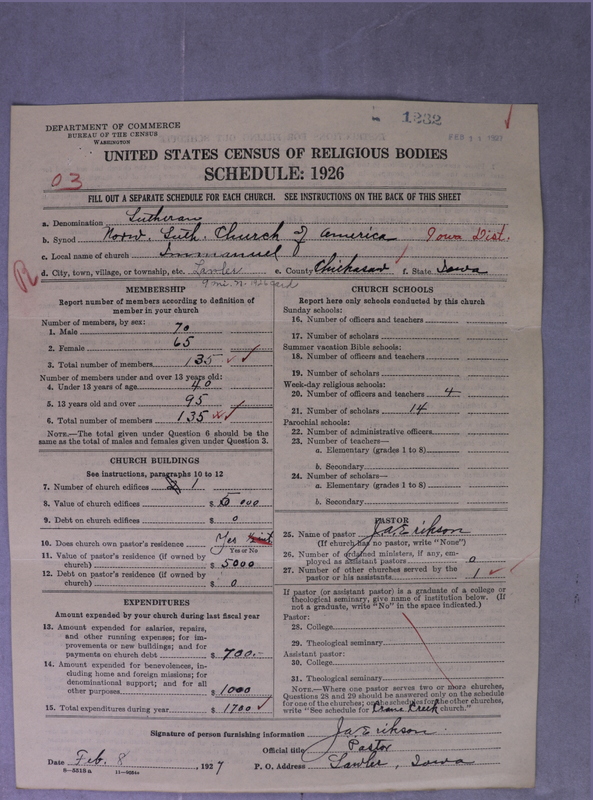 1232
FEB
DEPARTMENT OF COMMERCE
BUREAU OF THE CENSUS
WASHINGTON
UNITED STATES CENSUS OF RELIGIOUS BODIES
SCHEDULE: 1926
03
FILL OUT A SEPARATE SCHEDULE FOR EACH CHURCH. SEE INSTRUCTIONS ON THE BACK OF THIS SHEET
a. Denomination Lutheran
b. Synod Norw. Luth. Church of America Iowa Dist.
c. Local name of church Immanuel
d. City, town, village, or township, etc. Lawler e. County Chickasaw f. State Iowa
9 mi. N.
R
MEMBERSHIP
Report number of members according to definition of member in your church
Number of members, by sex:
1. Male 70
2. Female 65
3. Total number of members 135
Number of members under and over 13 years old:
4. Under 13 years of age 40
5. 13 years old and over 95
6. Total number of members 135
NOTE.—The total given under Question 6 should be the
same as the total of males and females given under Question 3.
CHURCH BUILDINGS
See instructions, paragraphs 10 to 12
7. Number of church edifices 1
8. Value of church edifices $ 5000
9. Debt on church edifices $ 0
10. Does church own pastor's residence? Yes
Yes or No
11. Value of pastor's residence (if owned by
church) $ 5000
12. Debt on pastor's residence (if owned by
church) $ 0
EXPENDITURES
Amount expended by your church during last fiscal year
13. Amount expended for salaries, repairs,
and other running expenses; for im-
provements or new buildings; and for
payments on church debt $ 700.-
14. Amount expended for benevolences, in-
cluding home and foreign missions; for
denominational support; and for all
other purposes $ 1000
15. Total expenditures during year $ 1700
CHURCH SCHOOLS
Report here only schools conducted by this church
Sunday schools:
16. Number of officers and teachers
17. Number of scholars
Summer vacation Bible schools:
18. Number of officers and teachers
19. Number of scholars
Week-day religious schools:
20. Number of officers and teachers 4
21. Number of scholars 14
Parochial schools:
22. Number of administrative officers
23. Number of teachers—
a. Elementary (grades 1 to 8)
b. Secondary
24. Number of scholars—
a. Elementary (grades 1 to 8)
b. Secondary
PASTOR
25. Name of pastor J.A. Erikson
(If church has no pastor, write "None")
26. Number of ordained ministers, if any, em-
ployed as assistant pastors 0
27. Number of other churches served by the
pastor or his assistants 1
If pastor (or assistant pastor) is a graduate of a college or
theological seminary, give name of institution below. (If
not a graduate, write "No" in the space indicated.)
Pastor:
28. College
29. Theological seminary
Assistant pastor:
30. College
31. Theological seminary
NOTE.—Where one pastor serves two or more churches,
Questions 28 and 29 should be answered only on the schedule
for one of the churches; on the schedules for the other churches,
write "See schedule for Crane Creek church."
Signature of person furnishing information J.A. Erikson
Official title Pastor
Date Feb. 8, 1927 P. O. Address Lawler, Iowa
8—5518a